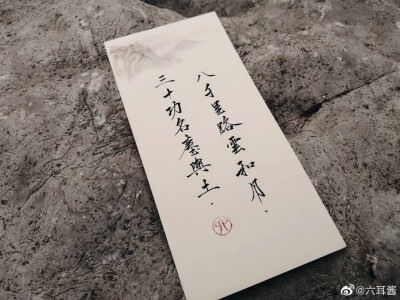 八千里路雲和月.
三十功名塵與土.
@六耳酱